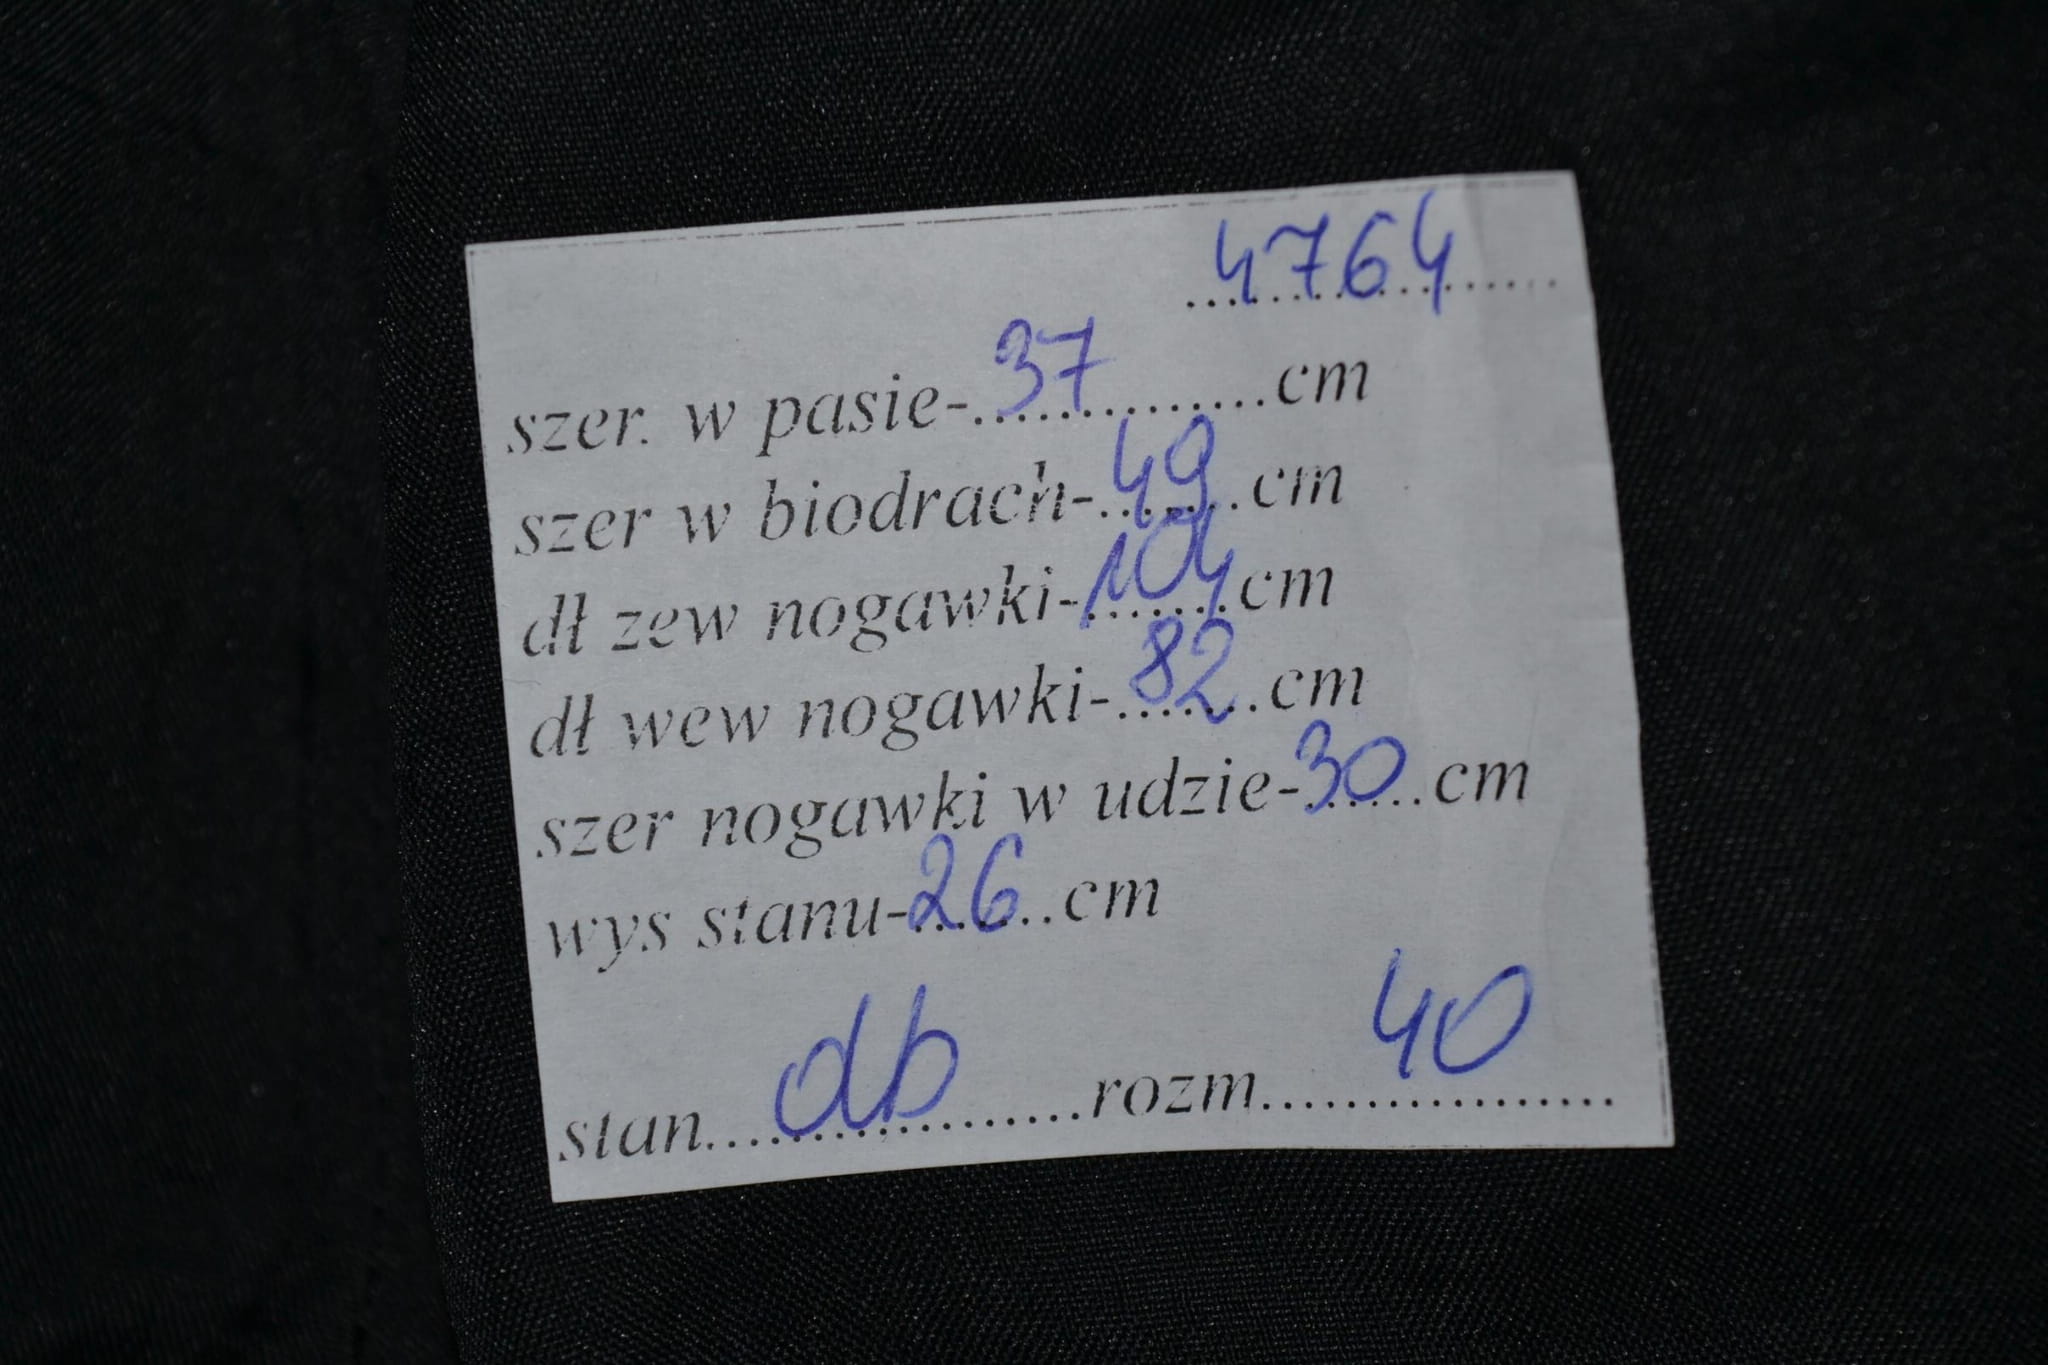 4764
szer. w pasie-37..............cm
szer w biodrach-49.......cm
dł zew nogawki-104.......cm
dł wew nogawki-82.......cm
szer nogawki w udzie-30......cm
wys stanu-26.......cm
stan...db...............rozm...40..............